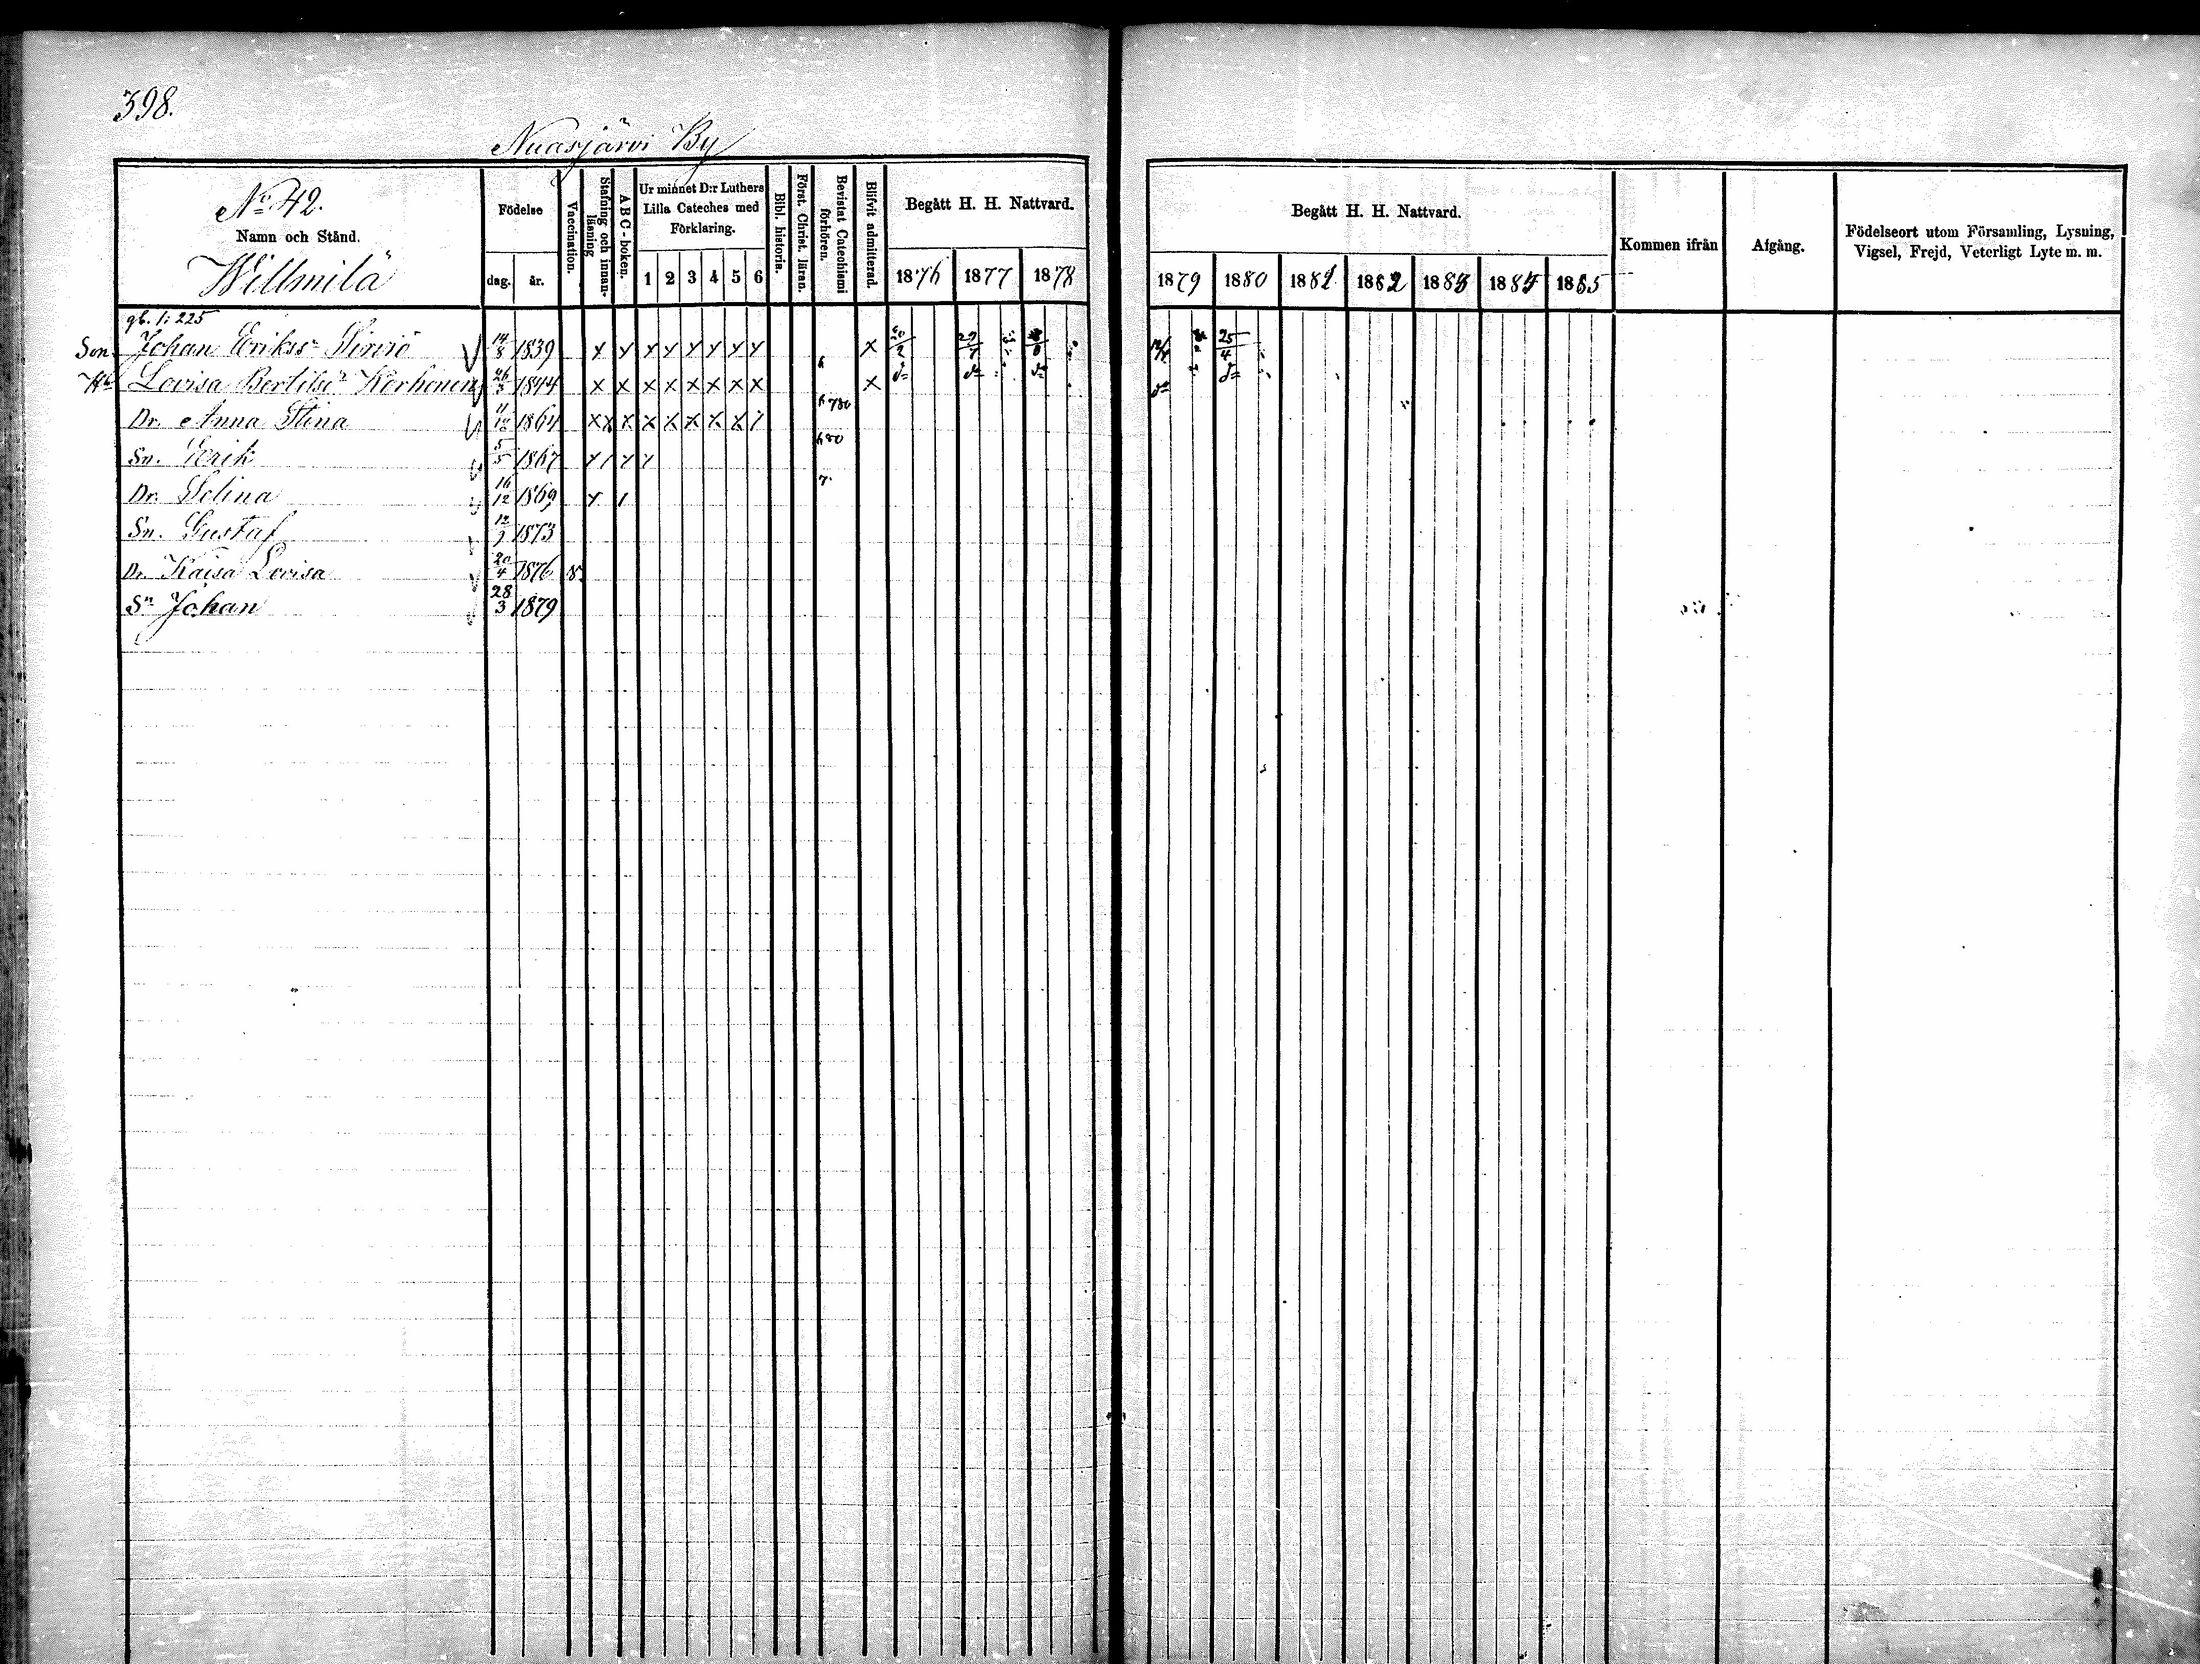 398.
Nuasjärvi By
No 42.
Namn och Stånd.
Willmilä
Födelse
dag. år.
Vaccination.
Stafning och innan-
läsning
ABC-boken.
Ur minnet D:r Luthers
Lilla Cateches med
Förklaring.
1 2 3 4 5 6
Bibl. historia.
Först. Christ. läran.
Bevistat Catechismi
förhören.
Blifvit admitterad.
Begått H. H. Nattvard.
1876 1877 1878
Begått H. H. Nattvard.
1879 1880 1881 1882 1883 1884 1885
Kommen ifrån
Afgång.
Födelseort utom Församling, Lysning,
Vigsel, Frejd, Veterligt Lyte m. m.
gb. 1: 225
Son. Johan Erikss. Sirviö 14/8 1839 x x x x x x x x x 29/4 25/4
Lovisa Bertilsdr Korhonen 26/3 1844 x x x x x x x x x do do do do do
Dr. Anna Stina 11/12 1864 x x x x x x x x
Sn. Erik 5/5 1867
Dr. Selina 16/12 1869
Sn. Gustaf 1873
Dr. Kaisa Lovisa 20/4 1876 v.
Sn Johan 28/3 1879